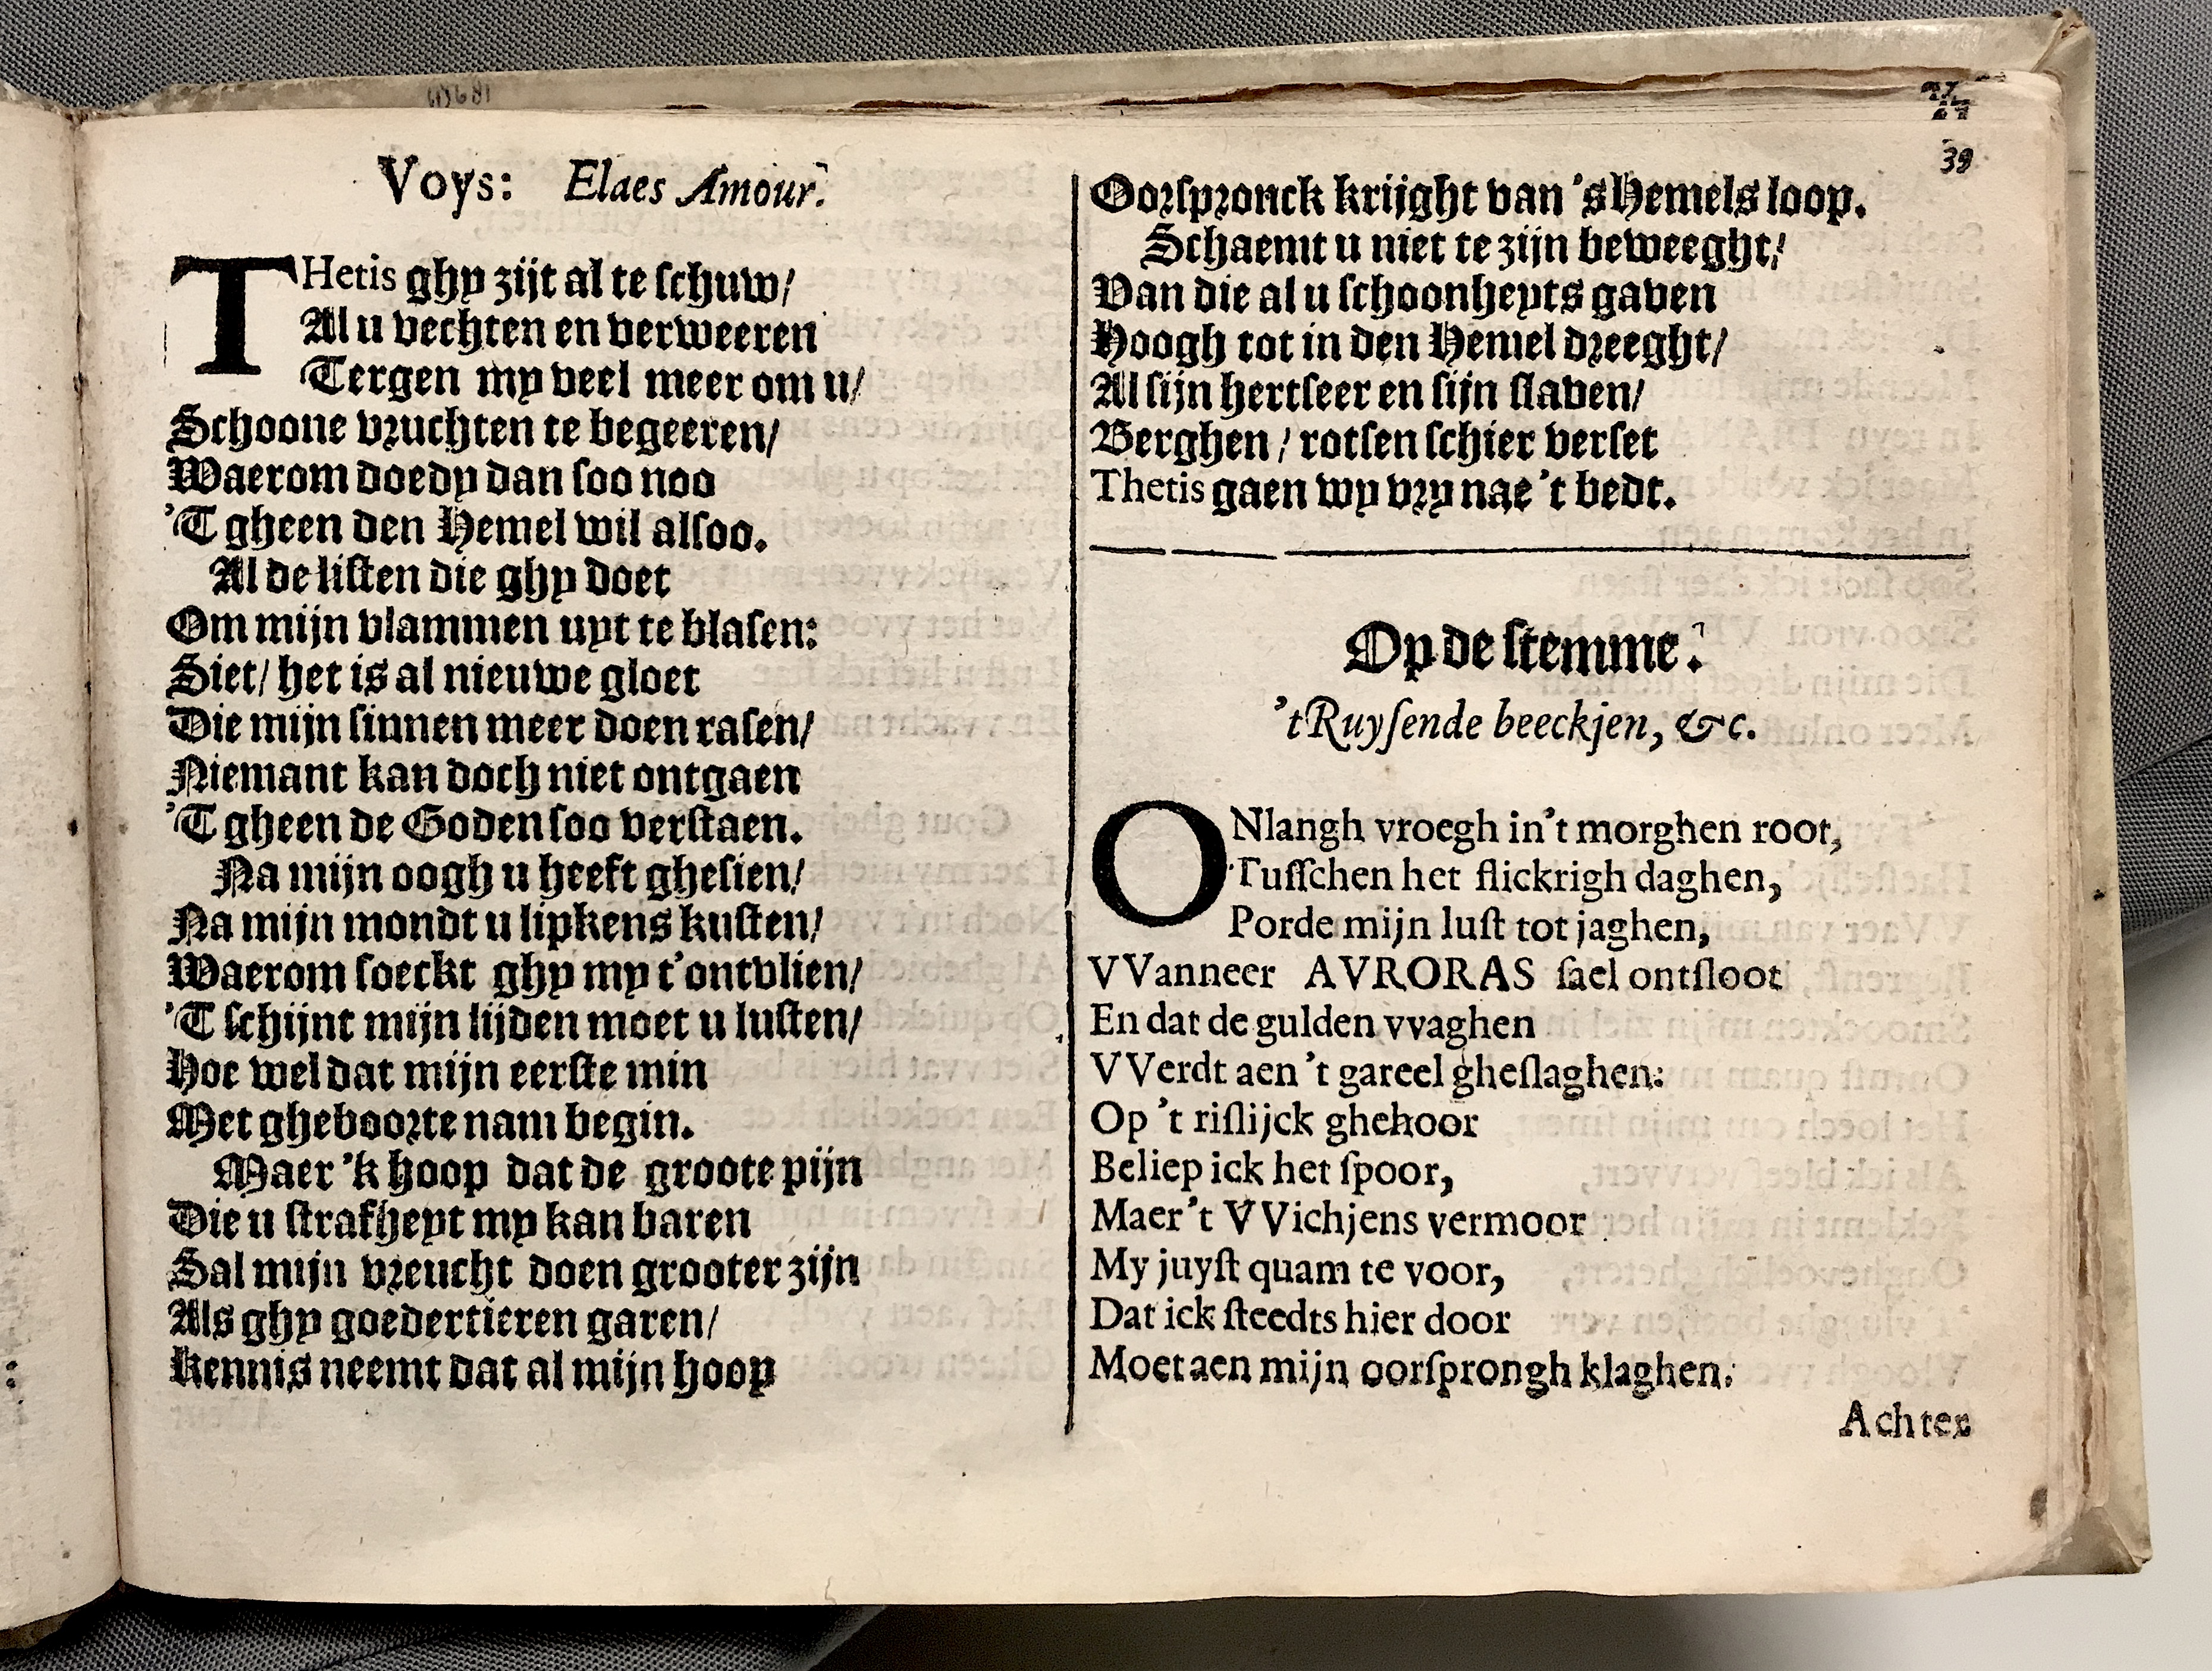 39
Voys: Elaes Amour.
THetis ghy zijt al te schuw/
Al u vechten en verweeren
Tergen my veel meer om u/
Schoone vruchten te begeeren/
Waerom doedy dan soo noo
'T gheen den Hemel wil alsoo.
Al de listen die ghy doet
Om mijn vlammen uyt te blasen:
Siet/ het is al nieuwe gloet
Die mijn sinnen meer doen rasen/
Niemant kan doch niet ontgaen
'T gheen de Goden soo verstaen.
Na mijn oogh u heeft ghesien/
Na mijn mondt u lipkens kusten/
Waerom soeckt ghy my t'ontvlien/
'T schijnt mijn lijden moet u lusten/
Hoe wel dat mijn eerste min
Met gheboorte nam begin.
Maer 'k hoop dat de groote pijn
Die u strafheyt my kan baren
Sal mijn vreucht doen grooter zijn
Als ghy goedertieren garen/
Kennis neemt dat al mijn hoop
Oorspronck krijght van 's Hemels loop.
Schaemt u niet te zijn beweeght/
Van die al u schoonheyts gaven
Hoogh tot in den Hemel dreeght/
Al sijn hertseer en sijn slaven/
Berghen / rotsen schier verset
Thetis gaen wy vry nae 't bedt.
Op de stemme:
't Ruysende beeckjen, &c.
ONlangh vroegh in't morghen root,
Tusschen het flickrigh daghen,
Porde mijn lust tot jaghen,
VVanneer AVRORAS sael ontsloot
En dat de gulden vvaghen
VVerdt aen 't gareel gheslaghen:
Op 't rislijck ghehoor
Beliep ick het spoor,
Maer't VVichjens vermoor
My juyst quam te voor,
Dat ick steedts hier door
Moet aen mijn oorsprongh klaghen.
Achter